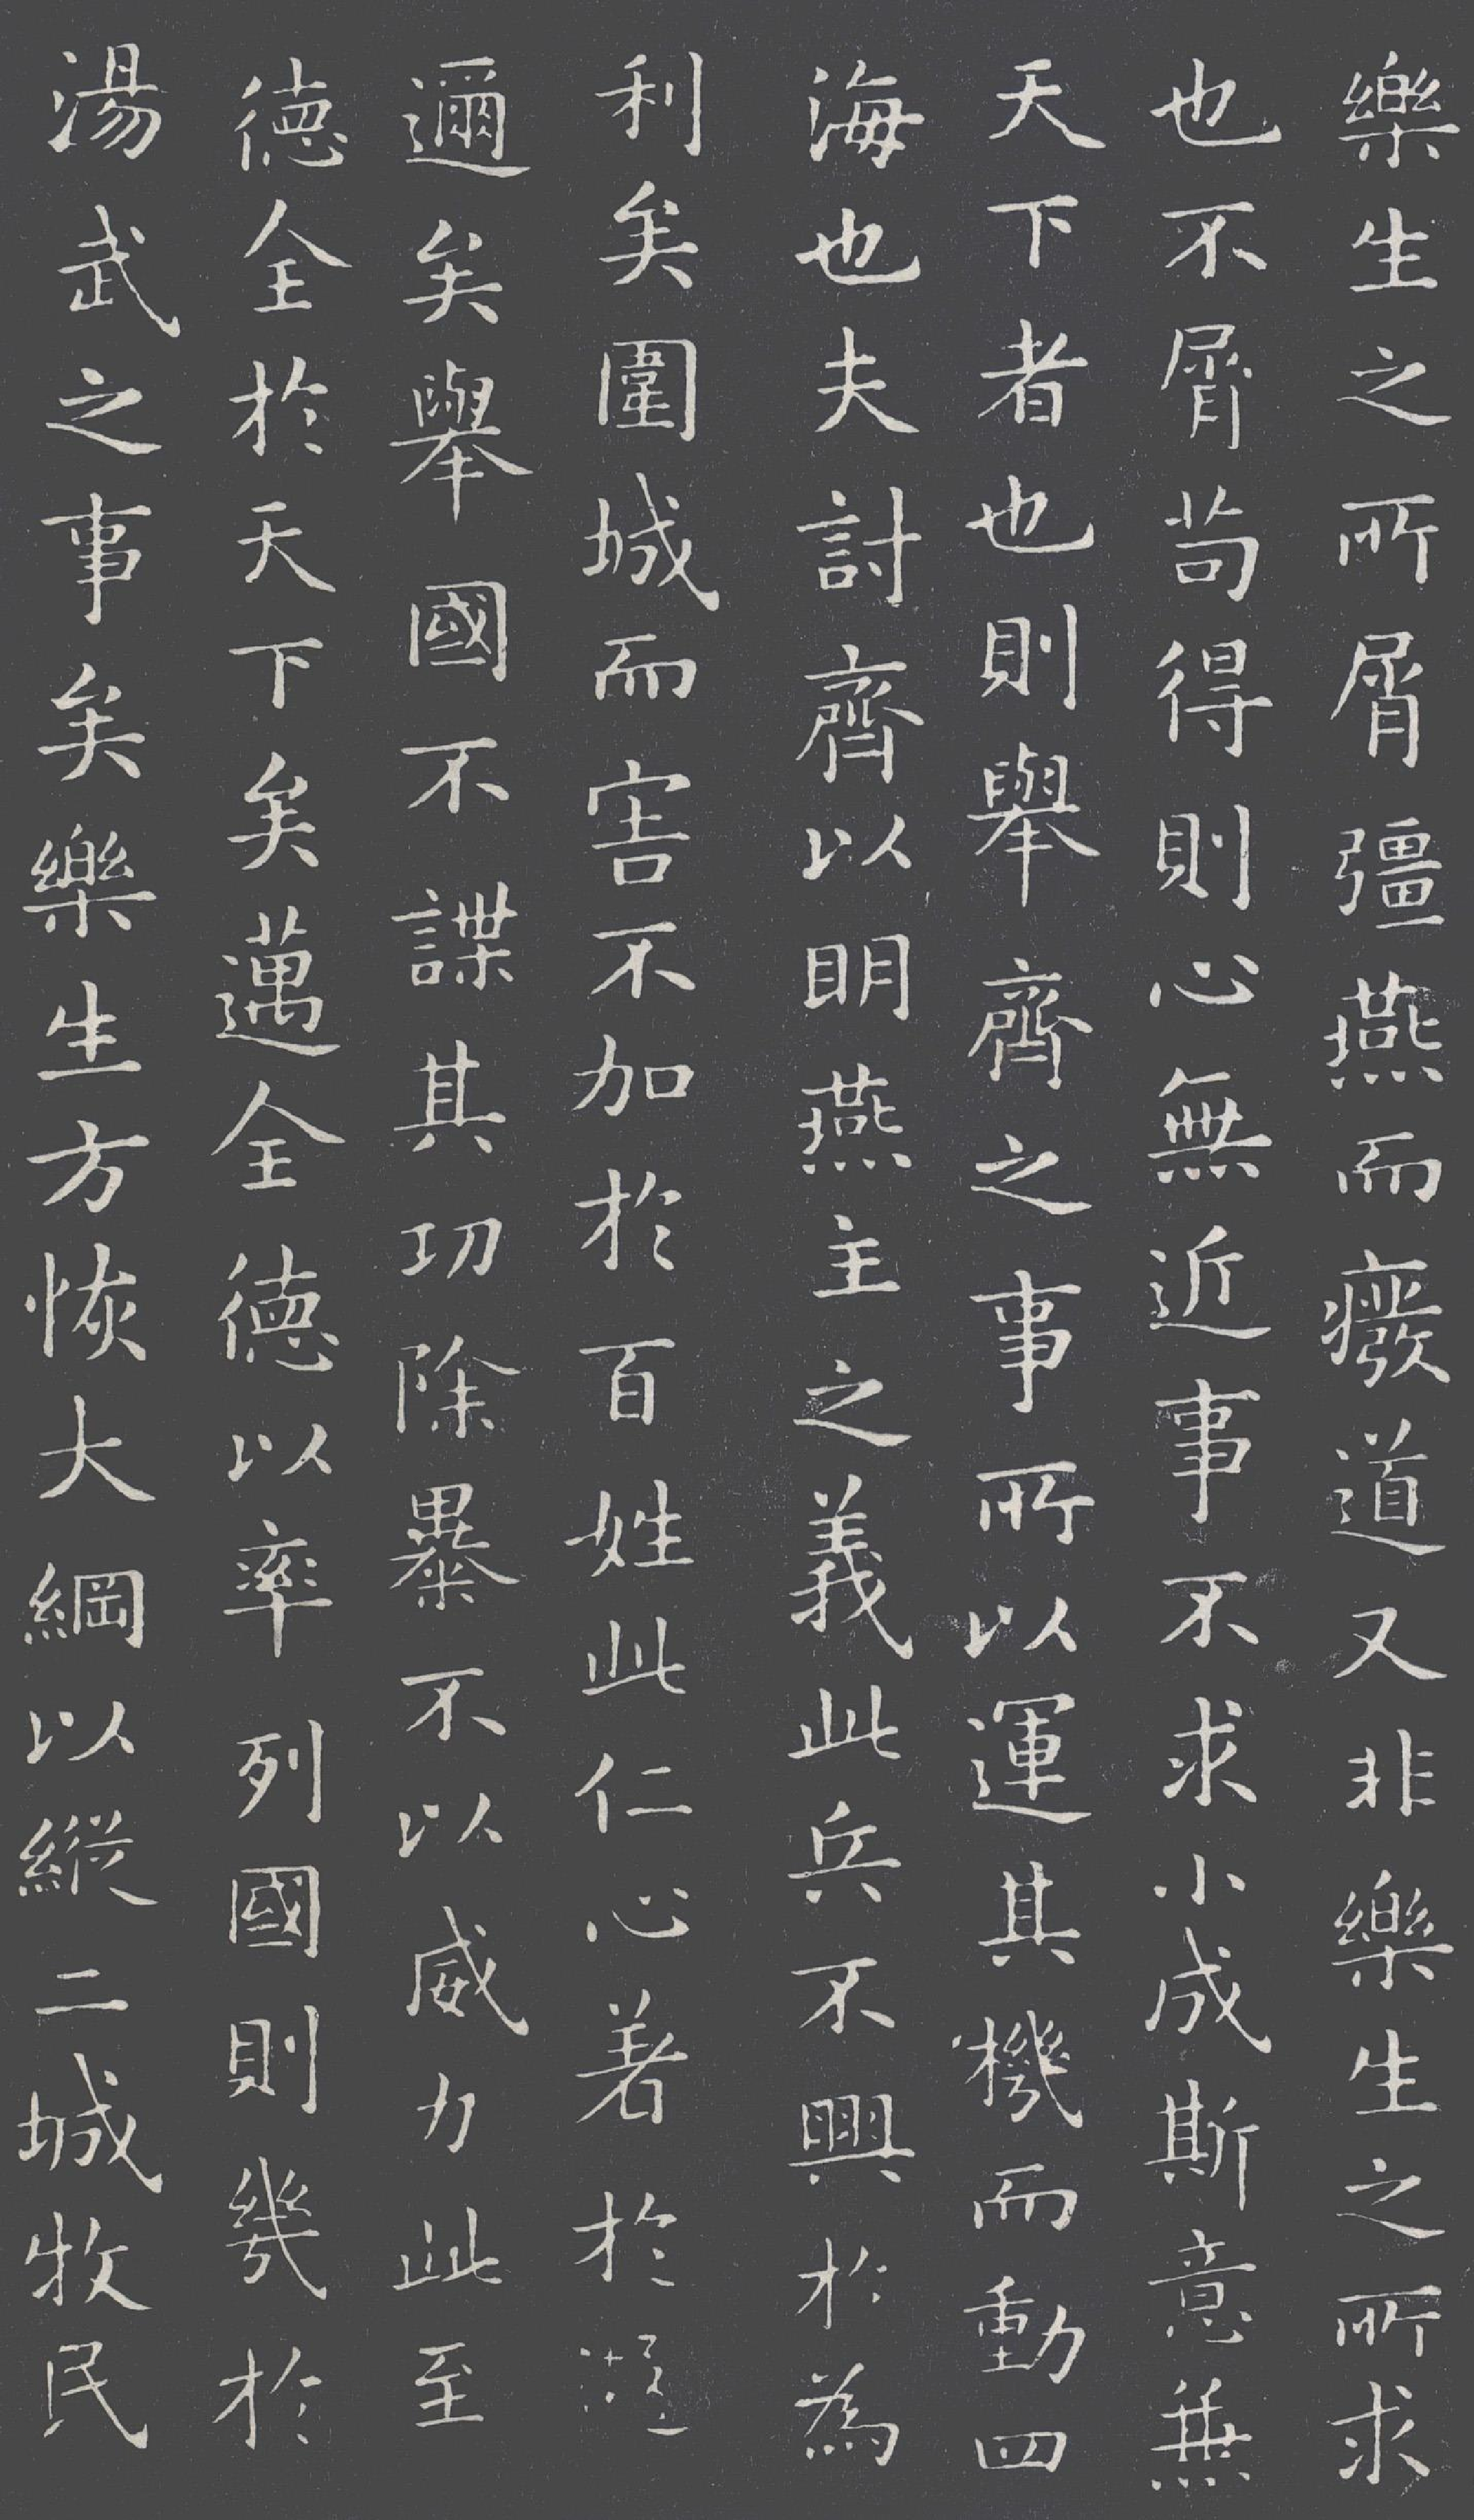 樂生之所屑彊燕而癈道又非樂生之所求
也不屑苟得則心無近事不求小成斯意兼
天下者也則舉齊之事所以運其機而動四
海也夫討齊以明燕主之義此兵不興於為
利矣圍城而害不加於百姓此仁心著於
邇矣舉國不諜其功除暴不以威力此至
德全於天下矣邁全德以率列國則幾於
湯武之事矣樂生方恢大綱以縱二城牧民